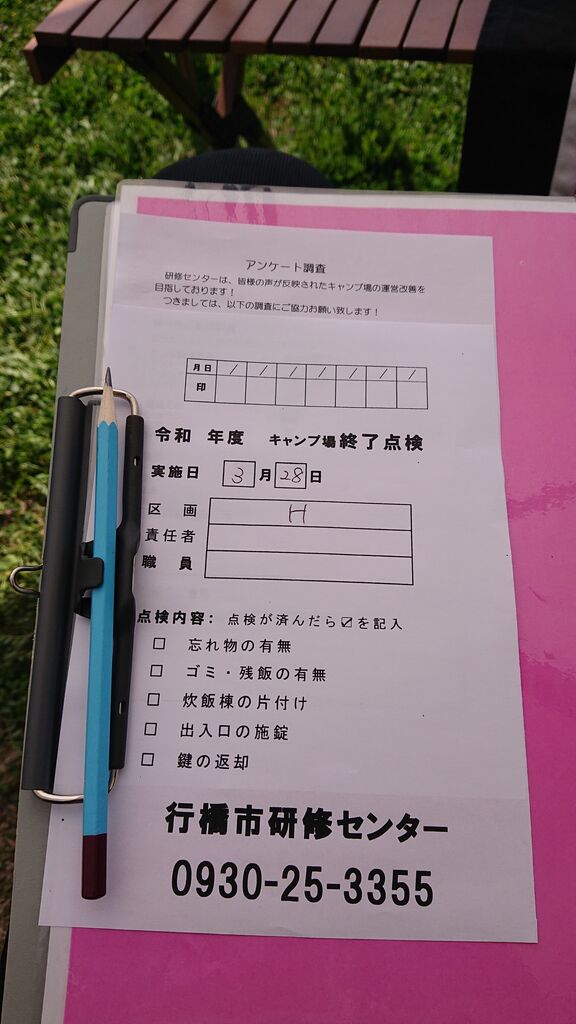 アンケート調査
研修センターは、皆様の声が反映されたキャンプ場の運営改善を
目指しております！
つきましては、以下の調査にご協力お願い致します！
月日 / / / / / / /
印
令和 年度 キャンプ場終了点検
実施日 3 月 28 日
区 画 H
責任者
職 員
点検内容: 点検が済んだら☑を記入
□ 忘れ物の有無
□ ゴミ・残飯の有無
□ 炊飯棟の片付け
□ 出入口の施錠
□ 鍵の返却
行橋市研修センター
0930-25-3355